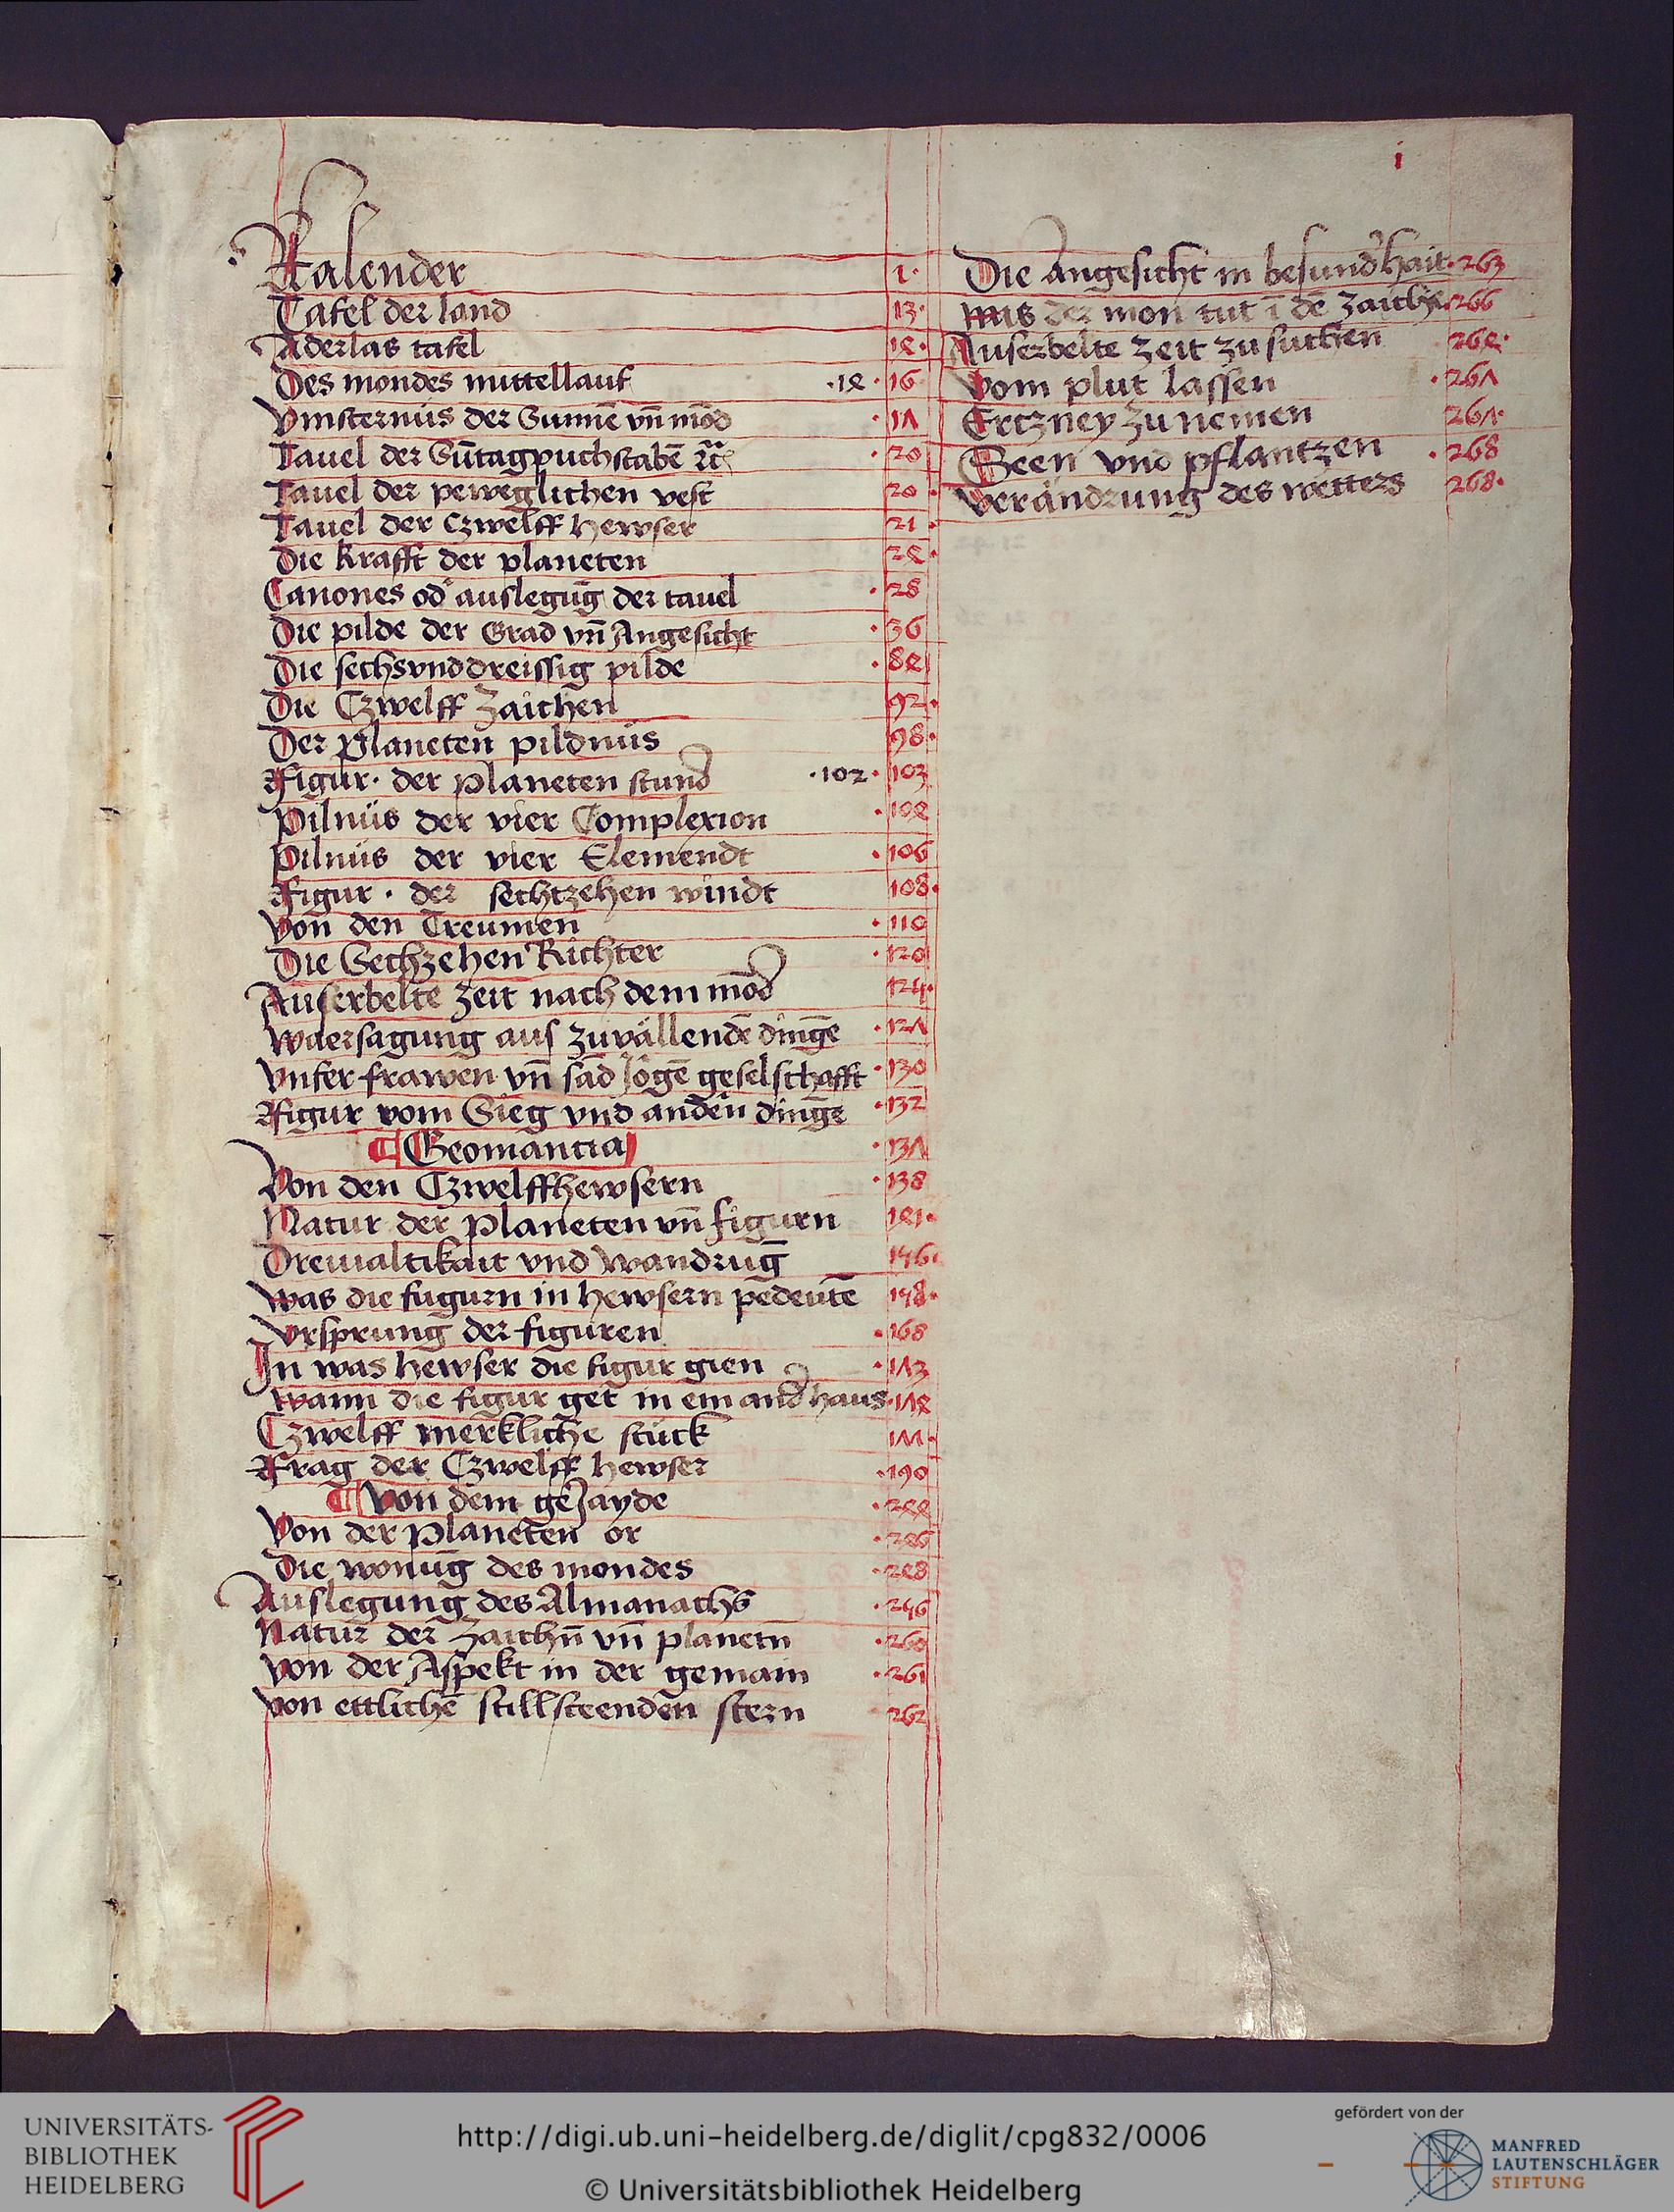 i
Kalender 1·
Tafel der land 13·
Aderlas tafel 14·
Des mondes mittellauf ·14· 16
Vinsternüs der Sunnē vñ mōd ·17
Tauel der Sūtagpuchstabē ꝛc̄ ·20
Tauel der peweglichen vest 20·
Tauel der Czwelff hewser 21·
Die krafft der planeten 24·
Canones od' auslegūg der tauel ·28
Die pilde der Grad vñ Angesicht ·36
Die sechsvnddreissig pilde ·84
Die Czwelff Zaichen 92·
Der Planeten pildnüs 98·
Figur· der planeten stund ·102· 103
Pilnüs der vier Complexion ·104
Pilnüs der vier Elemendt ·106
Figur· der sechtzehen windt 108·
Von den Treumen ·110
Die Sechzehen Richter ·120
Auserbelte Zeit nach dem mōd 124·
Waersagung aus zuvällendē dingē ·127
Vnser frawen vñ ·130
Figur vom Sieg vnd anden dinge ·132
Geomantia ·137
Von den Czwelffhewsern ·138
Natur der planeten vñ figurn 141·
Dreiualtikait vnd wandrūg 146·
Was die fugurn in hewsern pedeutē 148·
Vrsprung der figuren ·168
In was hewser die figur gien ·173
Wann die figur get in ein and' haus ·174
Czwelff merkliche stück 177·
Frag der Czwelff hewser ·190
Von dem geJayde ·244
Von der planeten or ·246
Die wonūg des mondes ·248
Auslegung des Almanachs ·256
Natur der Zaichñ vñ planetñ ·260
Von der Aspekt in der gemain ·261
Von ettlichē stillsteenden stern 262
Die Angesicht in besund'hait ·263
Was der mon tut ī dē zaichē ·266
Auserbelte Zeit zu suchen 264·
Vom plut lassen ·267
Ertzney zu nemen 267·
Seen vnd pflantzen ·268
Verändrung des wetters 268·
UNIVERSITÄTS-
BIBLIOTHEK
HEIDELBERG
http://digi.ub.uni-heidelberg.de/diglit/cpg832/0006
© Universitätsbibliothek Heidelberg
gefördert von der
MANFRED
LAUTENSCHLÄGER
STIFTUNG